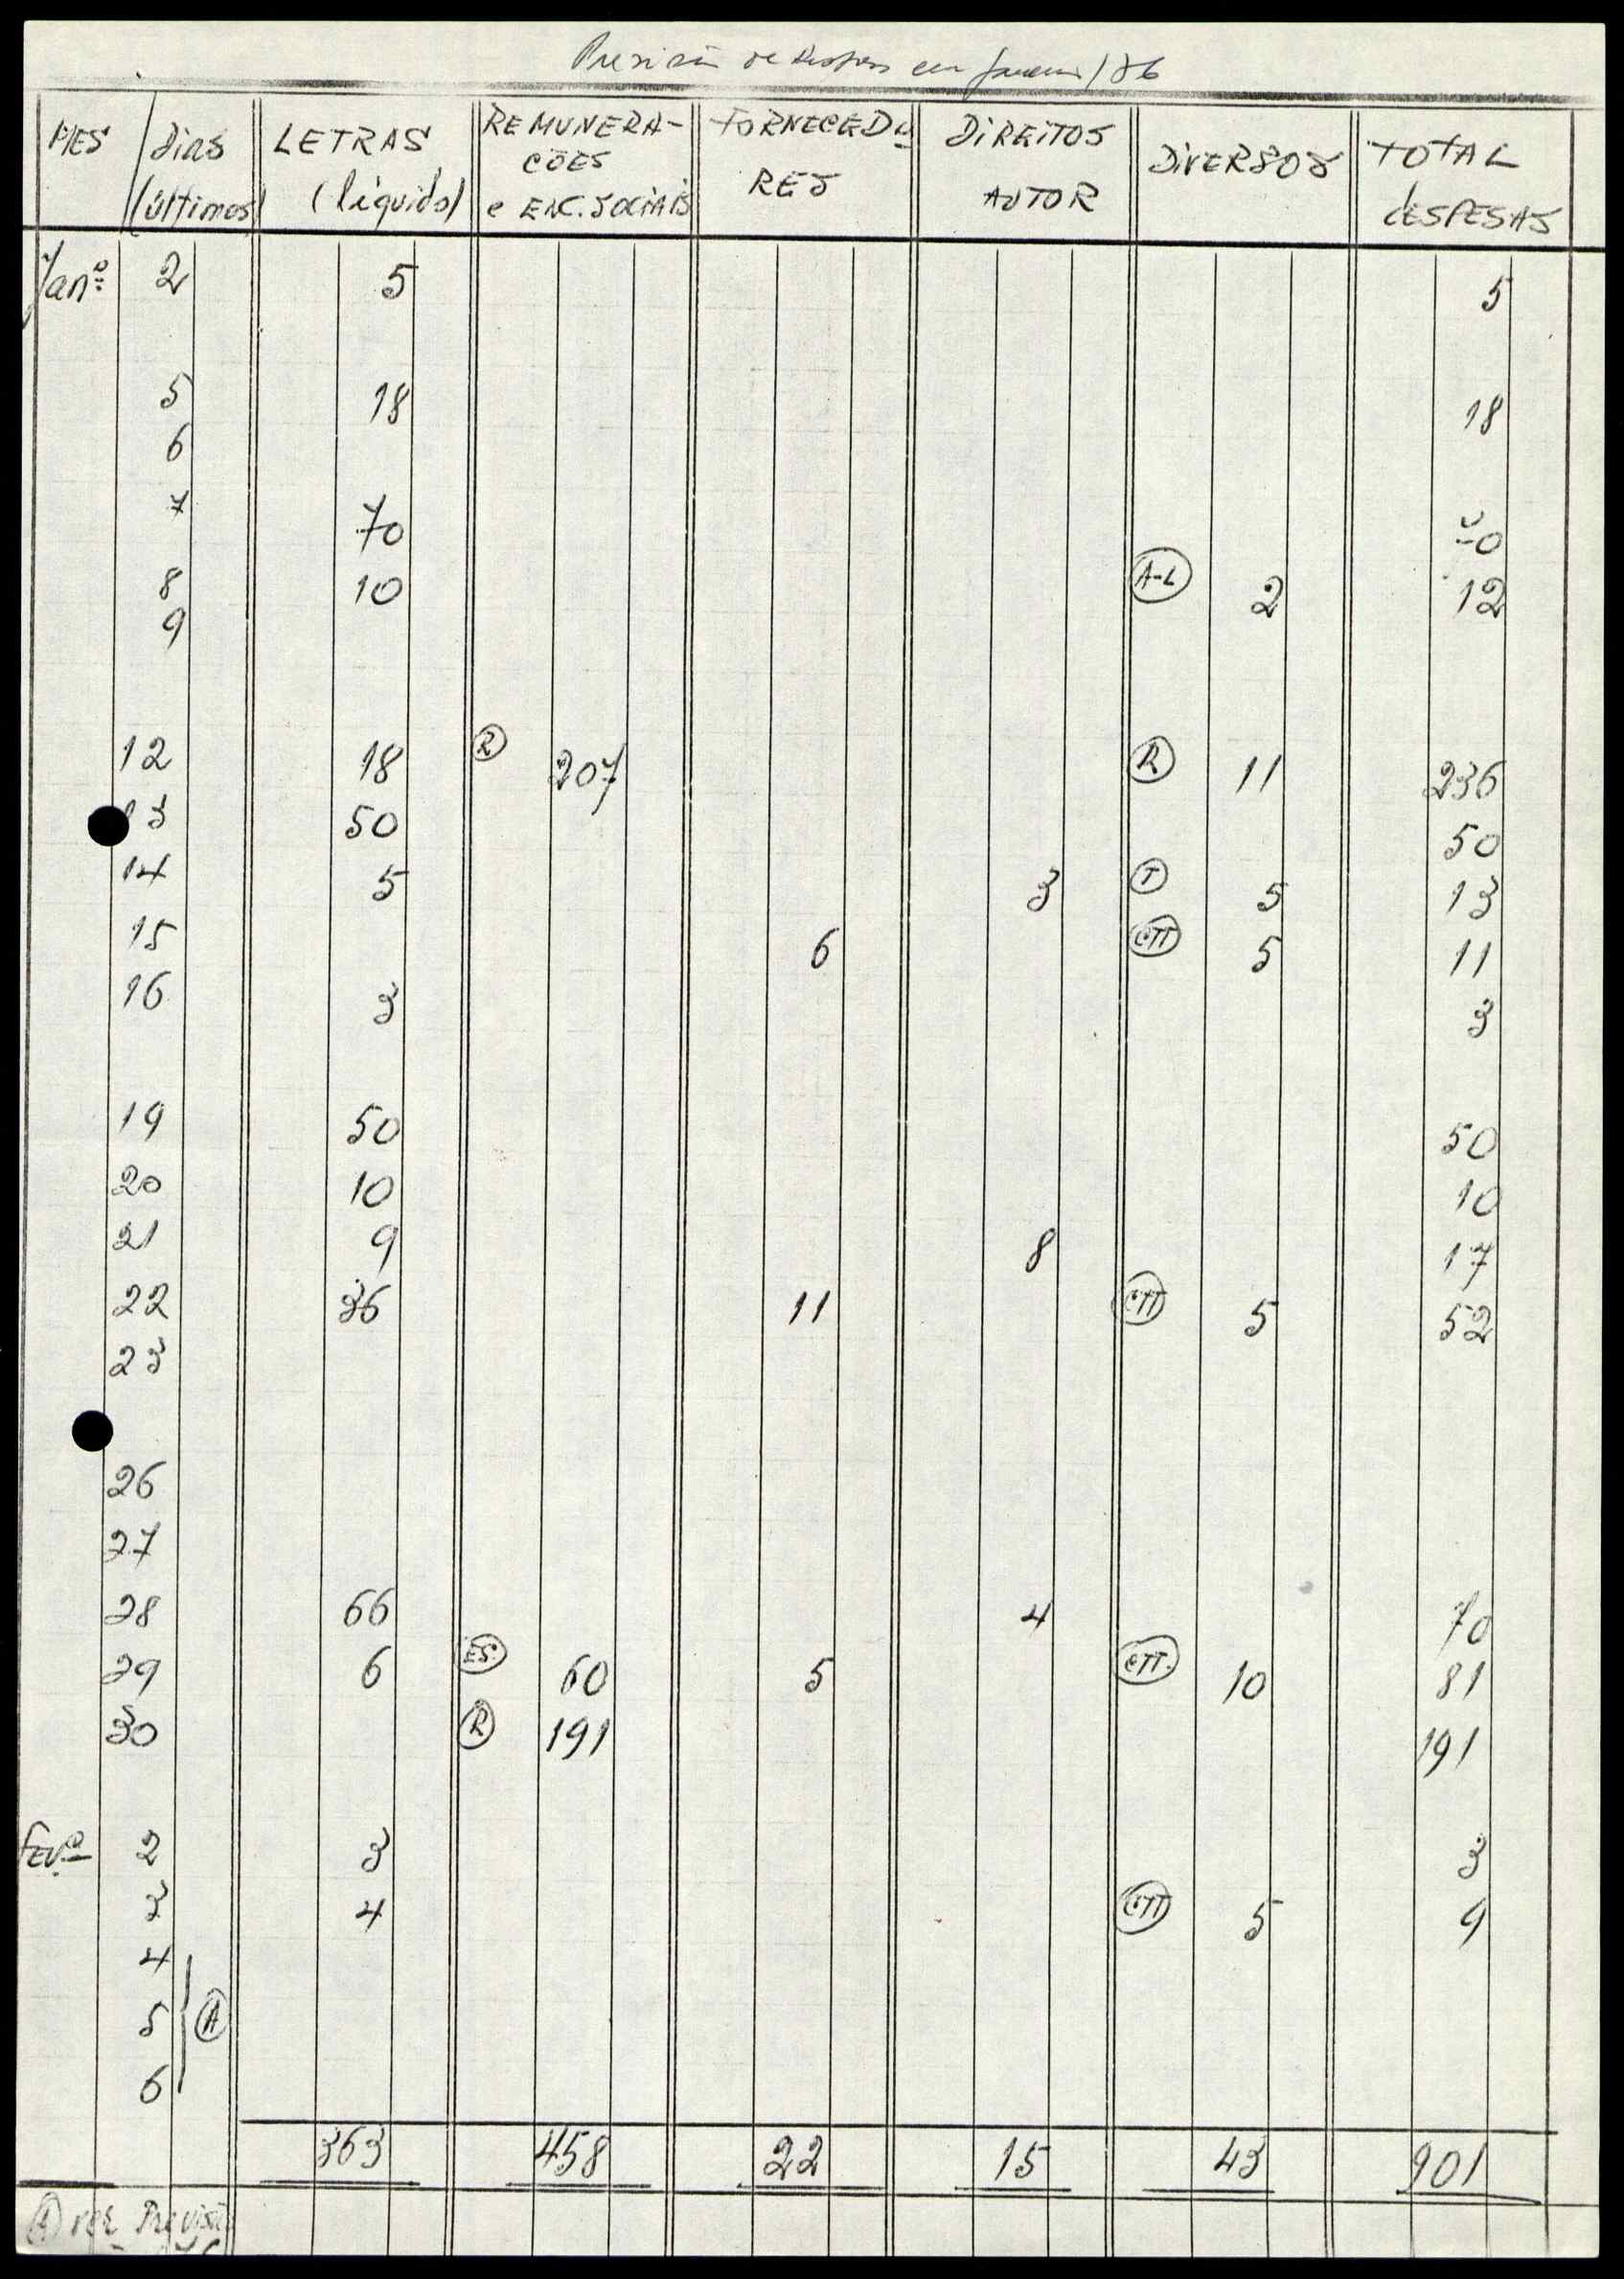 Previsão de despesas em Janeiro/86
MES dias LETRAS REMUNERA- FORNECEDO DIREITOS DIVERSOS TOTAL
(últimos) (líquido) ÇÕES RES AUTOR DESPESAS
e ENC. SOCIAIS
Janº 2 5 5
5 18 18
6
7 70 70
8 10 (A-L) 2 12
9
12 18 (R) 207 (R) 11 236
13 50 50
14 5 3 (T) 5 13
15 6 (CTT) 5 11
16 3 3
19 50 50
20 10 10
21 9 8 17
22 36 11 (CTT) 5 52
23
26
27
28 66 4 70
29 6 (ES.) 60 5 (CTT.) 10 81
30 (R) 191 191
FEVº 2 3 3
3 4 (CTT) 5 9
4
5 (A)
6
363 458 22 15 43 901
(A) ver Previsã